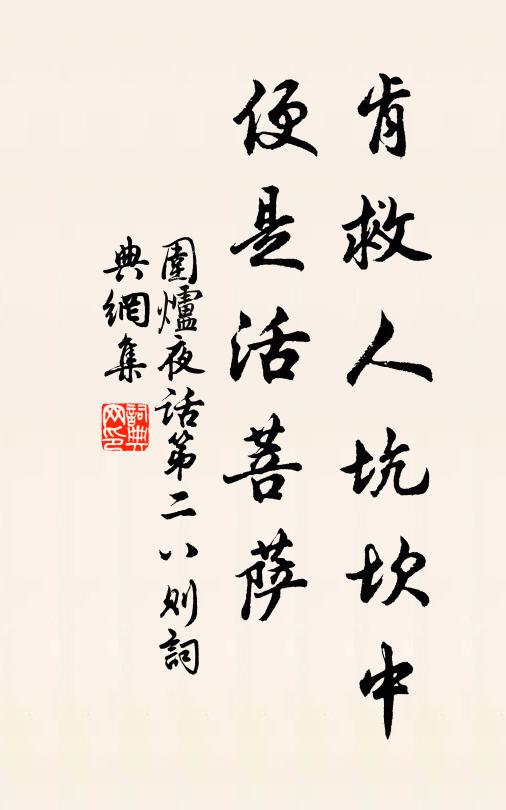 肯救人坑坎中
便是活菩薩
圍爐夜話第二八則詞
典網集
詞典网印